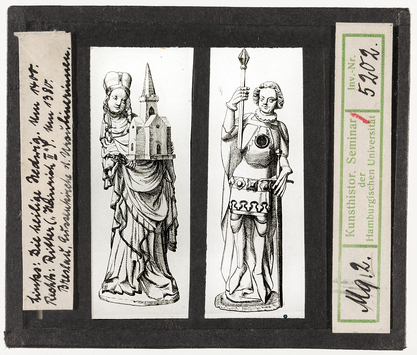 Links: Die heilige Hedwig. Um 1400.
Rechts: Ritter, Heinrich II? Um 1380.
Breslau,
Kunsthistor. Seminar
der
Hamburgischen Universität
Inv.-Nr.
5202.
Mg. 2.